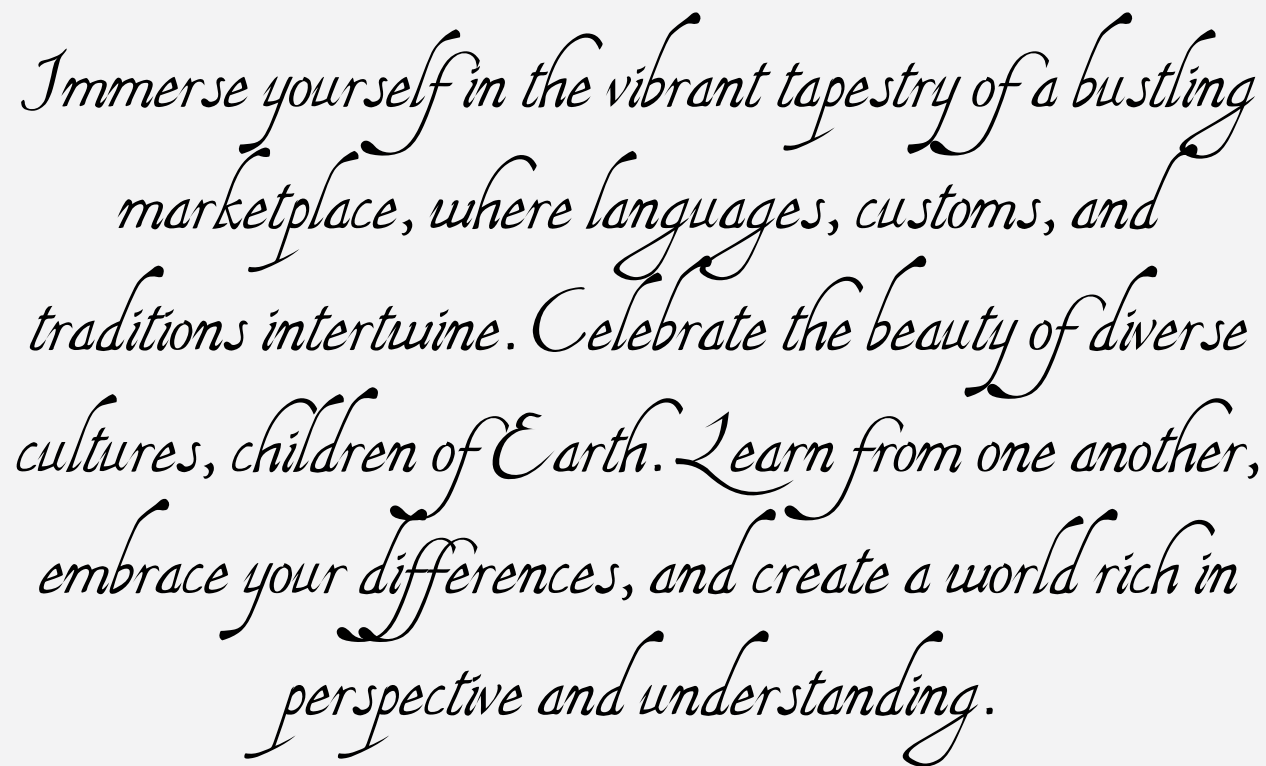 Immerse yourself in the vibrant tapestry of a bustling
marketplace, where languages, customs, and
traditions intertwine. Celebrate the beauty of diverse
cultures, children of Earth. Learn from one another,
embrace your differences, and create a world rich in
perspective and understanding.